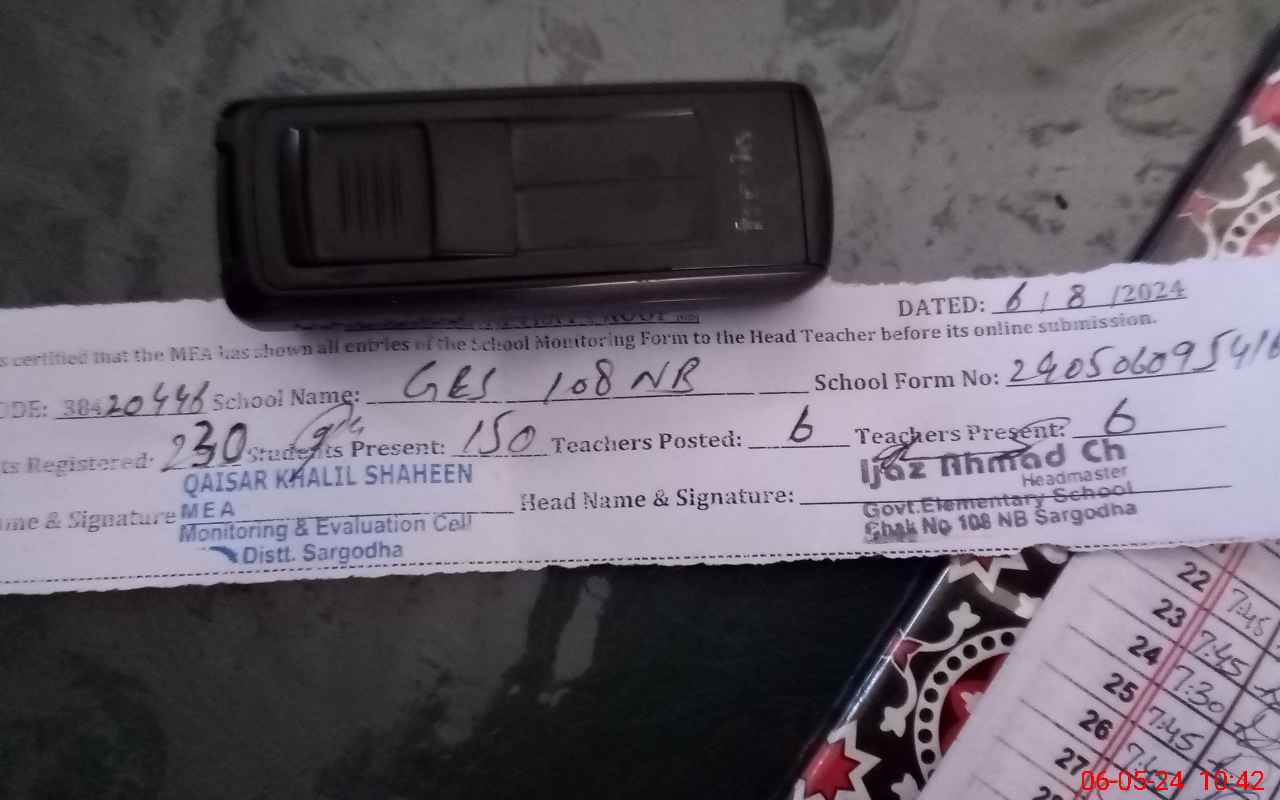 DATED: 6/8/2024
s certified that the MEA has shown all entries of the School Monitoring Form to the Head Teacher before its online submission.
DE: 38420446 School Name: GES 108 NB School Form No: 2405060954
ts Registered: 230 Students Present: 150 Teachers Posted: 6 Teachers Present: 6
me & Signature Head Name & Signature:
QAISAR KHALIL SHAHEEN
MEA
Monitoring & Evaluation Cell
Distt. Sargodha
Ijaz Ahmad Ch
Headmaster
Govt.Elementary School
Chak No 108 NB Sargodha
22 7:45
23 7:45
24 7:30
25 7:45
26
27
06-05-24 10:42